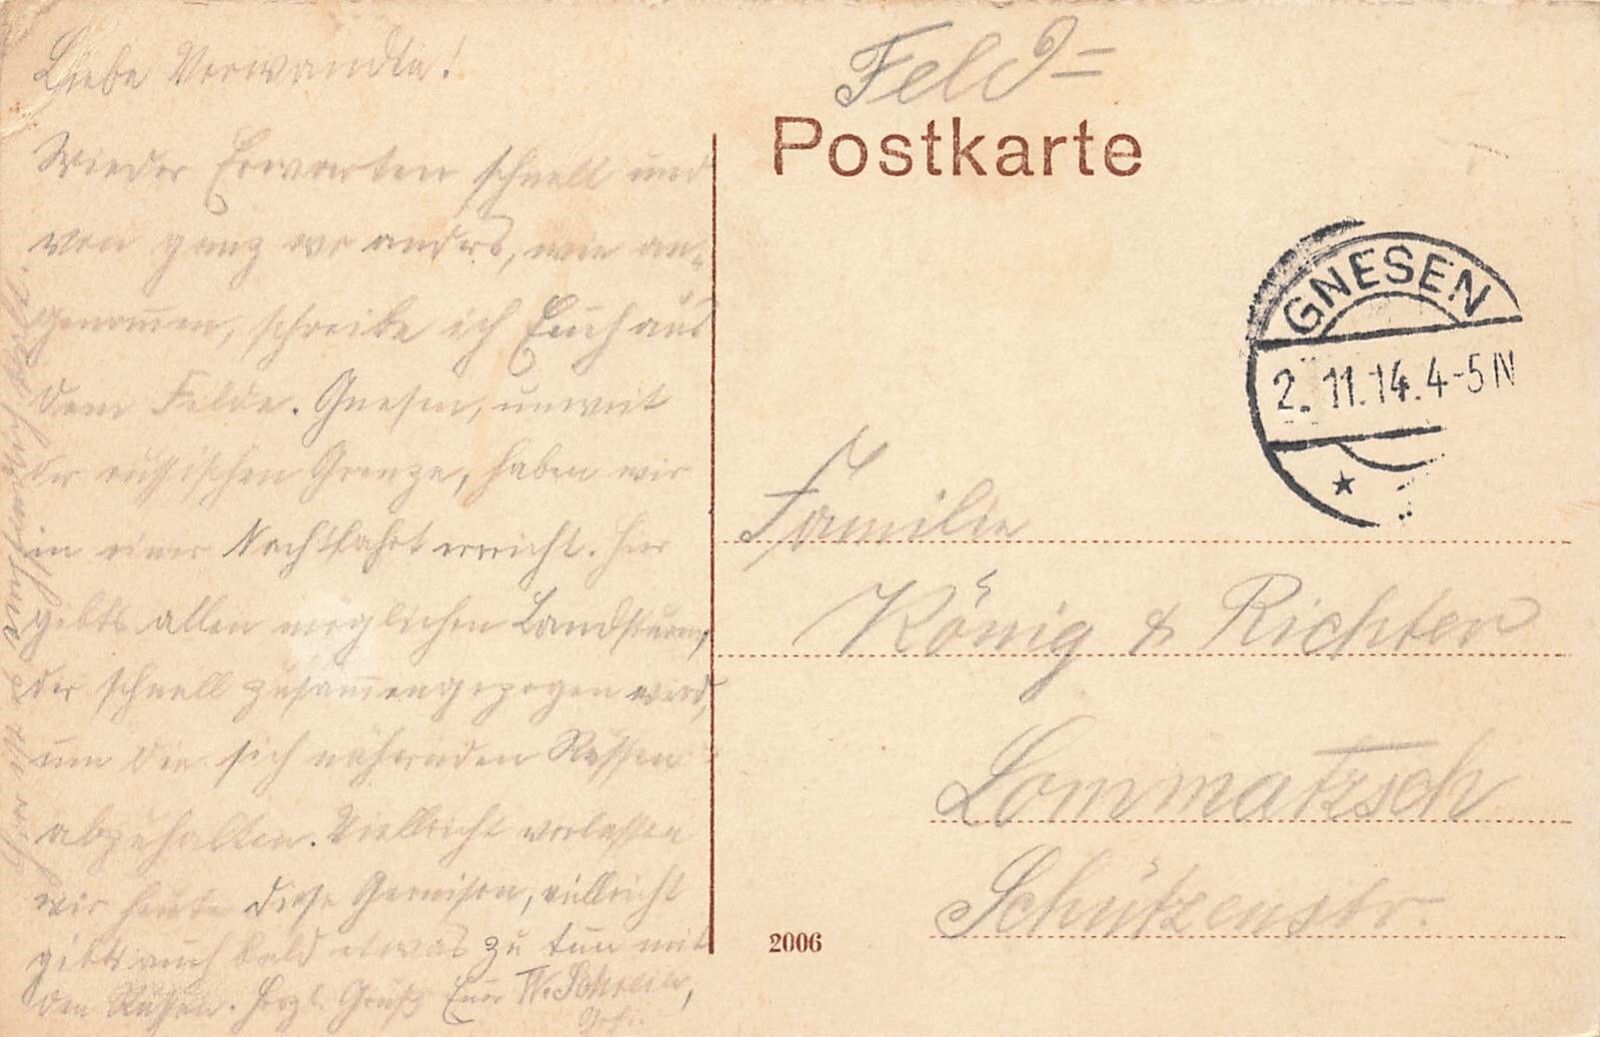 Liebe Verwandte!
Wieder Erwarten schnell und
von ganz wo anders, wie an-
genom̅en, schreibe ich Euch aus
dem Felde. Gnesen, unweit
der russischen Grenze, haben wir
in einer Nachtfahrt erreicht. Hier
gibts allen möglichen Landsturm,
der schnell zusam̅engezogen wird,
um die sich nähernden Russen
abzuhalten. Vielleicht verlassen
wir heute diese Garnison, vielleicht
gibts auch bald etwas zu tun mit
den Russen. Herzl. Gruß Euer W. Schreier,
Feld=
Postkarte
GNESEN
2.11.14.4-5N
Familie
König & Richter
Lommatzsch
Schützenstr.
2006